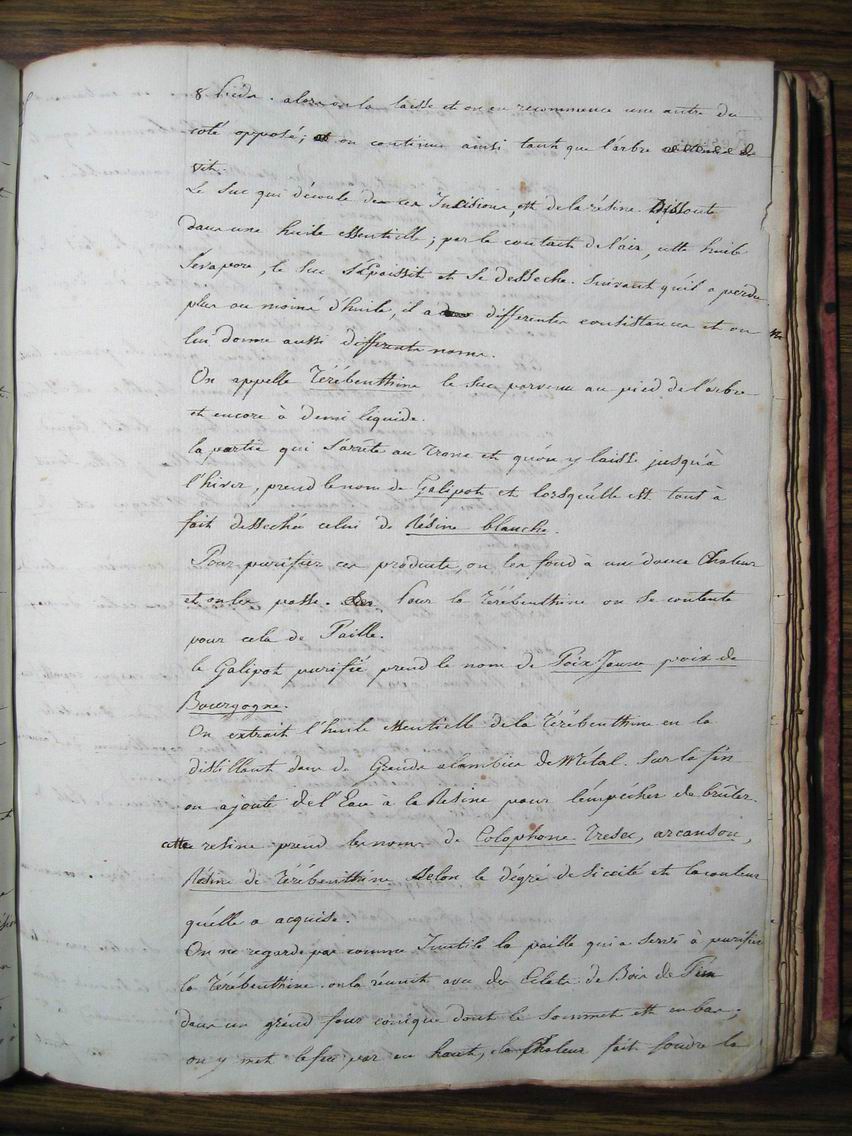 8 pieds. alors on la laisse et on en recommence une autre du
coté opposé; et on continue ainsi tant que l'arbre
vit.
Le suc qui découle de ces Incisions, est de la résine Dissoute
dans une huile essentielle; par le contact de l'air, cette huile
s'evapore, le suc s'épaissit et se dessèche. suivant qu'il a perdu
plus ou moins d'huile, il a differentes consistances et on
lui donne aussi differents noms.
On appelle Térébenthine le suc parvenu au pied de l'arbre
et encore à demi liquide.
la partie qui s'arrête au tronc et qu'on y laisse jusqu'à
l'hiver, prend le nom de Galipot et lorsqu'elle est tout à
fait dessechée celui de Résine blanche.
Pour purifier ces produits, on les fond à une douce Chaleur
et on les passe. Pour la Térébenthine on se contente
pour cela de Paille.
le Galipot purifié prend le nom de Poix Jaune poix de
Bourgogne.
On extrait l'huile essentielle de la Térébenthine en la
distillant dans de Grands alambics de Métal. sur la fin
on ajoute de l'Eau à la Résine pour l'empêcher de brûler.
cette resine prend les noms de Colophone bresec, arcanson,
Résine de Térébenthine selon le dégré de siccité et la couleur
qu'elle a acquise.
On ne regarde pas comme Inutile la paille qui a servi à purifier
la Térébenthine. on la réunit avec des Eclats de Bois de Pin
dans un grand four conique dont le sommet est en bas;
on y met le feu par en haut, la Chaleur fait fondre la